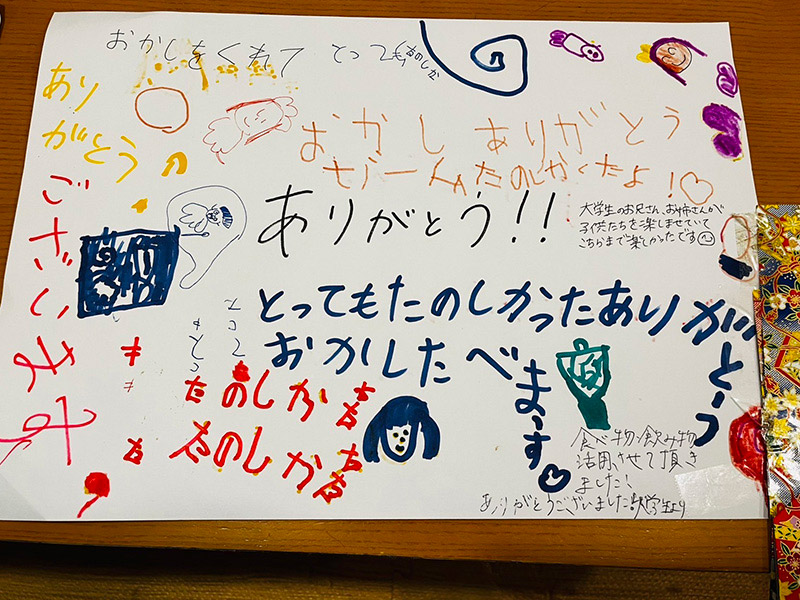 おかしをくれて とってもたのしか
あり
がとう
ござい
ます
おかし ありがとう
ぜーんぶたのしかったよ！♡
ありがとう!!
大学生のお兄さん、お姉さんが
子供たちを楽しませていて
こちらまで楽しかったです
とってもたのしかったありがとう
おかしたべまーす♡
たのしかった
たのしかった
食べ物・飲み物
活用させて頂き
ました！
ありがとうございました!!